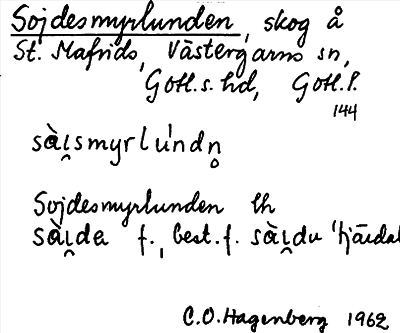 Sojdesmyrlunden, skog å
St. Mafrids, Västergarns sn,
Gotl.s.hd, Gotl.l.
144
sàɩ̯smyrlúndn̥
Sojdesmyrlunden lh
sàɩ̯da f., best.f. sàɩ̯du
C.O.Hagenberg 1962